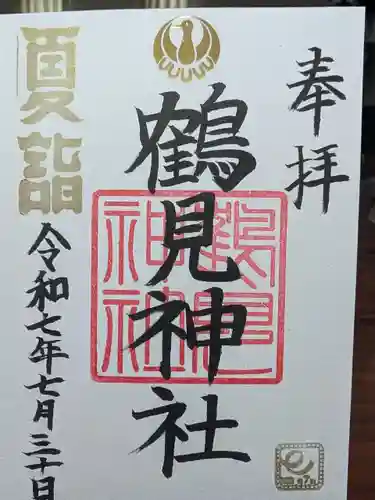 奉拝
鶴見神社
夏詣
令和七年七月三十日
鶴見神社